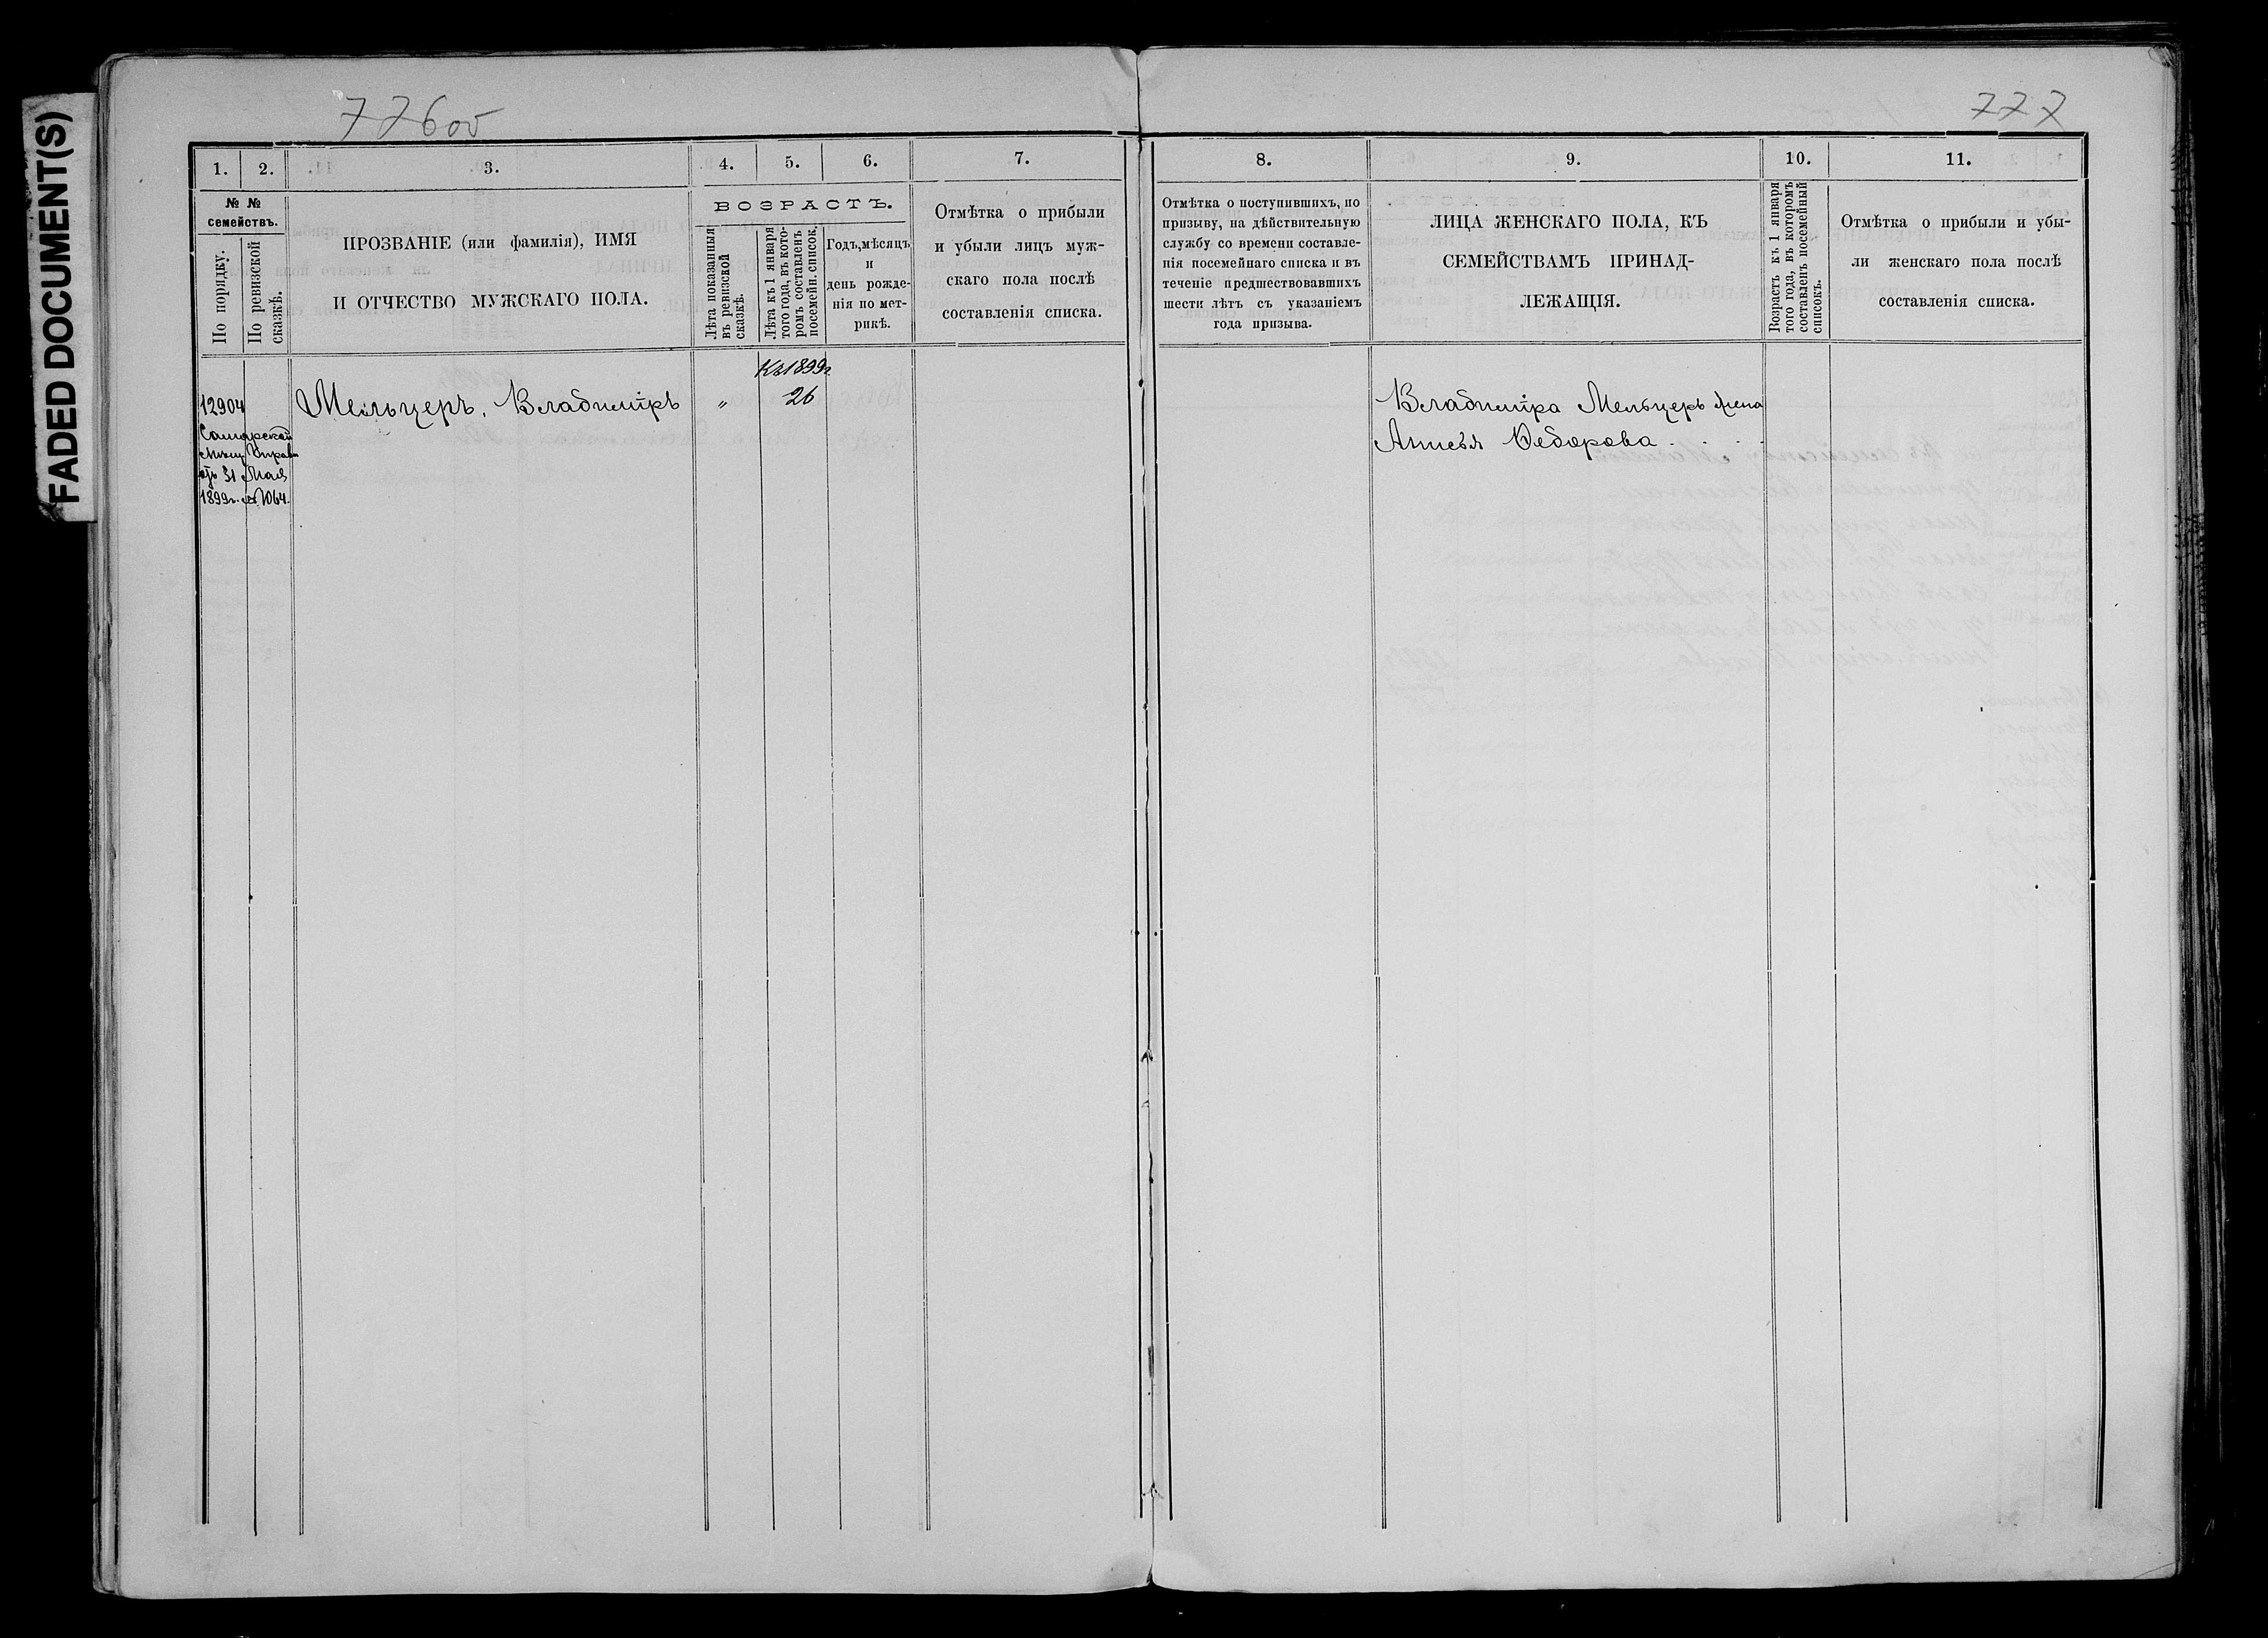 FADED DOCUMENT(S)
776об
777
1. 2. 3. 4. 5. 6. 7.
№ №
семействъ.
По порядку.
По ревизской
сказкѣ.
ПРОЗВАНІЕ (или фамилія), ИМЯ
И ОТЧЕСТВО МУЖСКАГО ПОЛА.
ВОЗРАСТЪ.
Лѣта показанныя
въ ревизской
сказкѣ.
Лѣта къ 1 января
того года, въ кото-
ромъ составленъ
посемейн. список.
Годъ, мѣсяцъ
и
день рожде-
нія по мет-
рикѣ.
Отмѣтка о прибыли
и убыли лицъ муж-
скаго пола послѣ
составленія списка.
Къ 1899г.
12904 Мельцеръ, Владиміръ „ 26
Самарской
Мѣщ. Управы
отъ 31 Мая
1899г. № 1064.
8. 9. 10. 11.
Отмѣтка о поступившихъ, по
призыву, на дѣйствительную
службу со времени составле-
нія посемейнаго списка и въ
теченіе предшествовавшихъ
шести лѣтъ съ указаніемъ
года призыва.
ЛИЦА ЖЕНСКАГО ПОЛА, КЪ
СЕМЕЙСТВАМЪ ПРИНАД-
ЛЕЖАЩІЯ.
Возрастъ къ 1 января
того года, въ которомъ
составленъ посемейный
списокъ.
Отмѣтка о прибыли и убы-
ли женскаго пола послѣ
составленія списка.
Владиміра Мельцеръ жена
Анисья Федорова . . . .